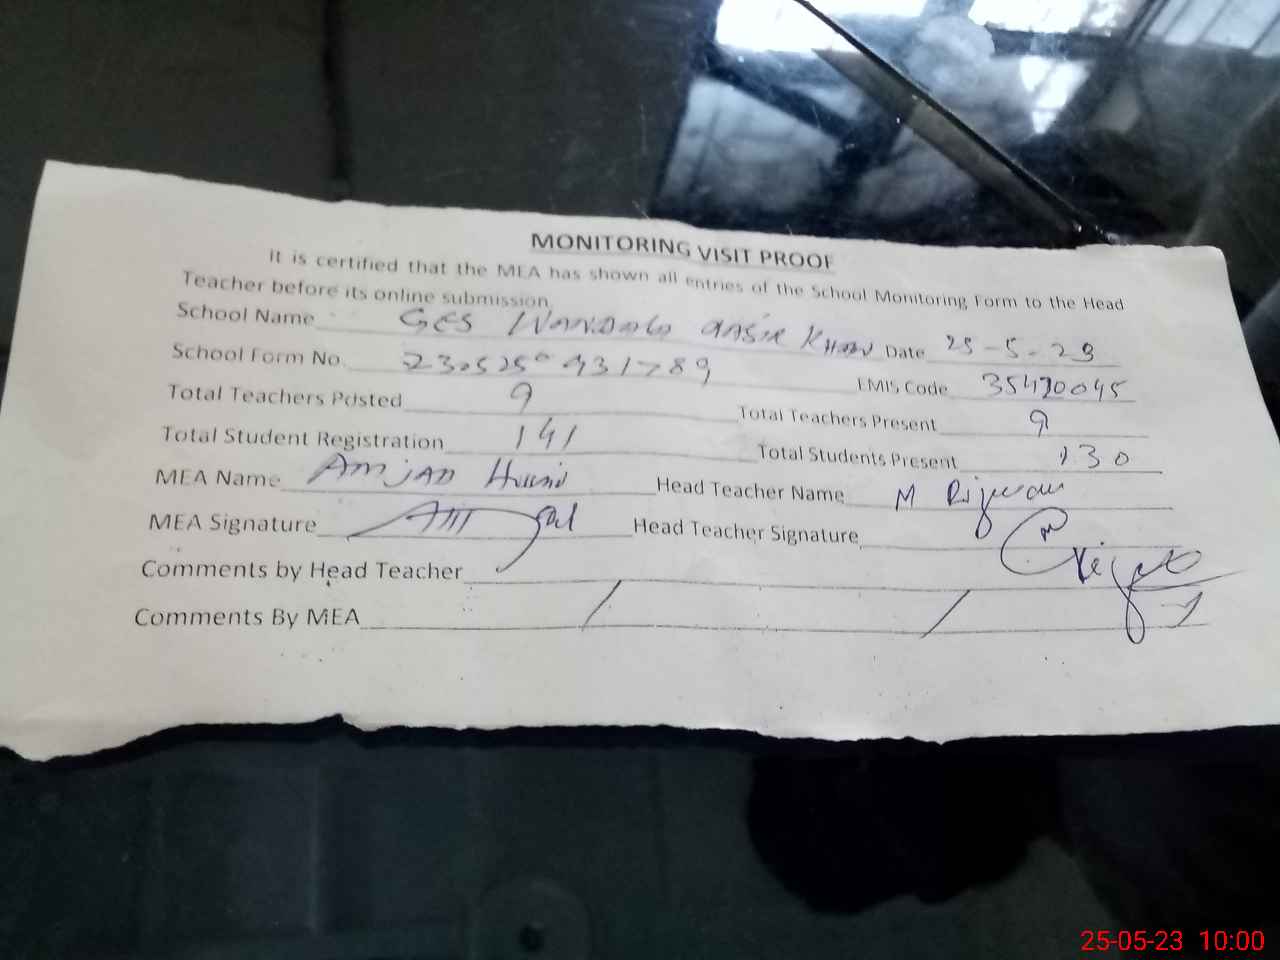 MONITORING VISIT PROOF
It is certified that the MEA has shown all entries of the School Monitoring Form to the Head
Teacher before its online submission.
School Name GES Khan Date 25-5-23
School Form No. EMIS Code 35420045
Total Teachers Posted 9 Total Teachers Present 9
Total Student Registration 141 Total Students Present 130
MEA Name Amjad Head Teacher Name M Rizwan
MEA Signature Head Teacher Signature
Comments by Head Teacher
Comments By MEA
25-05-23 10:00